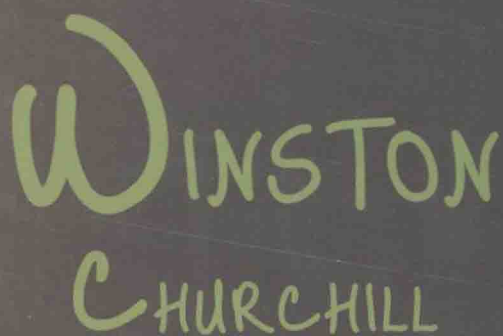 WINSTON
CHURCHILL